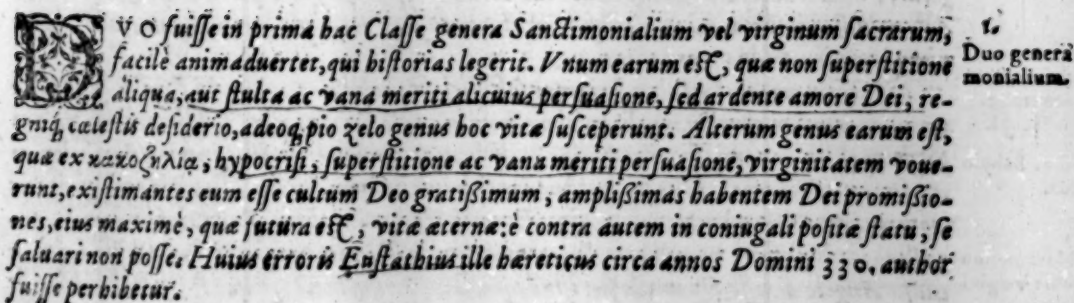 DVO fuiſſe in prima hac Claſſe genera Sanctimonialium vel virginum ſacrarum,
facilè animaduertet, qui hiſtorias legerit. Vnum earum eſt, quæ non ſuperſtitione
aliqua, aut ſtulta ac vana meriti alicuius perſuaſione, ſed ardente amore Dei, re-
gniq́; cæleſtis deſiderio, adeoq́; pio zelo genus hoc vitæ ſuſceperunt. Alterum genus earum eſt,
quæ ex κακοζηλίᾳ, hypocriſi, ſuperſtitione ac vana meriti perſuaſione, virginitatem voue-
runt, exiſtimantes eum eſſe cultum Deo gratiſſimum, ampliſſimas habentem Dei promiſſio-
nes, eius maximè, quæ futura eſt, vitæ æternæ: è contra autem in coniugali poſitæ ſtatu, ſe
ſaluari non poſſe. Huius erroris Euſtathius ille hæreticus circa annos Domini 330. author
fuiſſe perhibetur.
1.
Duo genera
monialium.